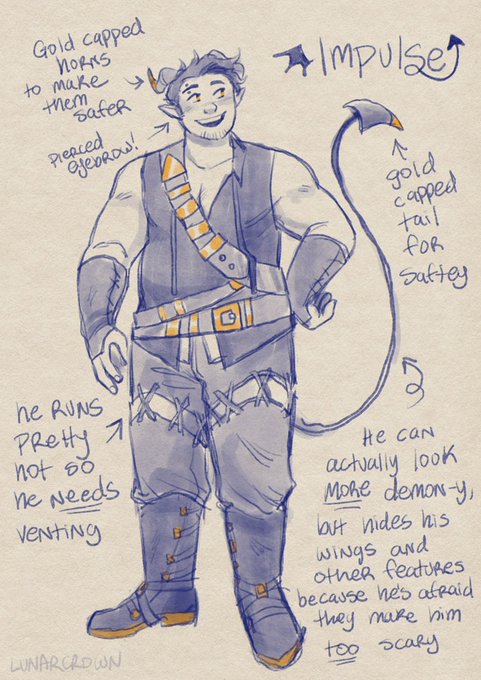 Impulse
Gold capped
horns
to make
them
safer
Pierced
eyebrow!
gold
capped
tail
for
saftey
he runs
pretty
hot so
he needs
venting
He can
actually look
MORE demon-y,
but hides his
wings and
other features
because he's afraid
they make him
too scary
LUNARCROWN